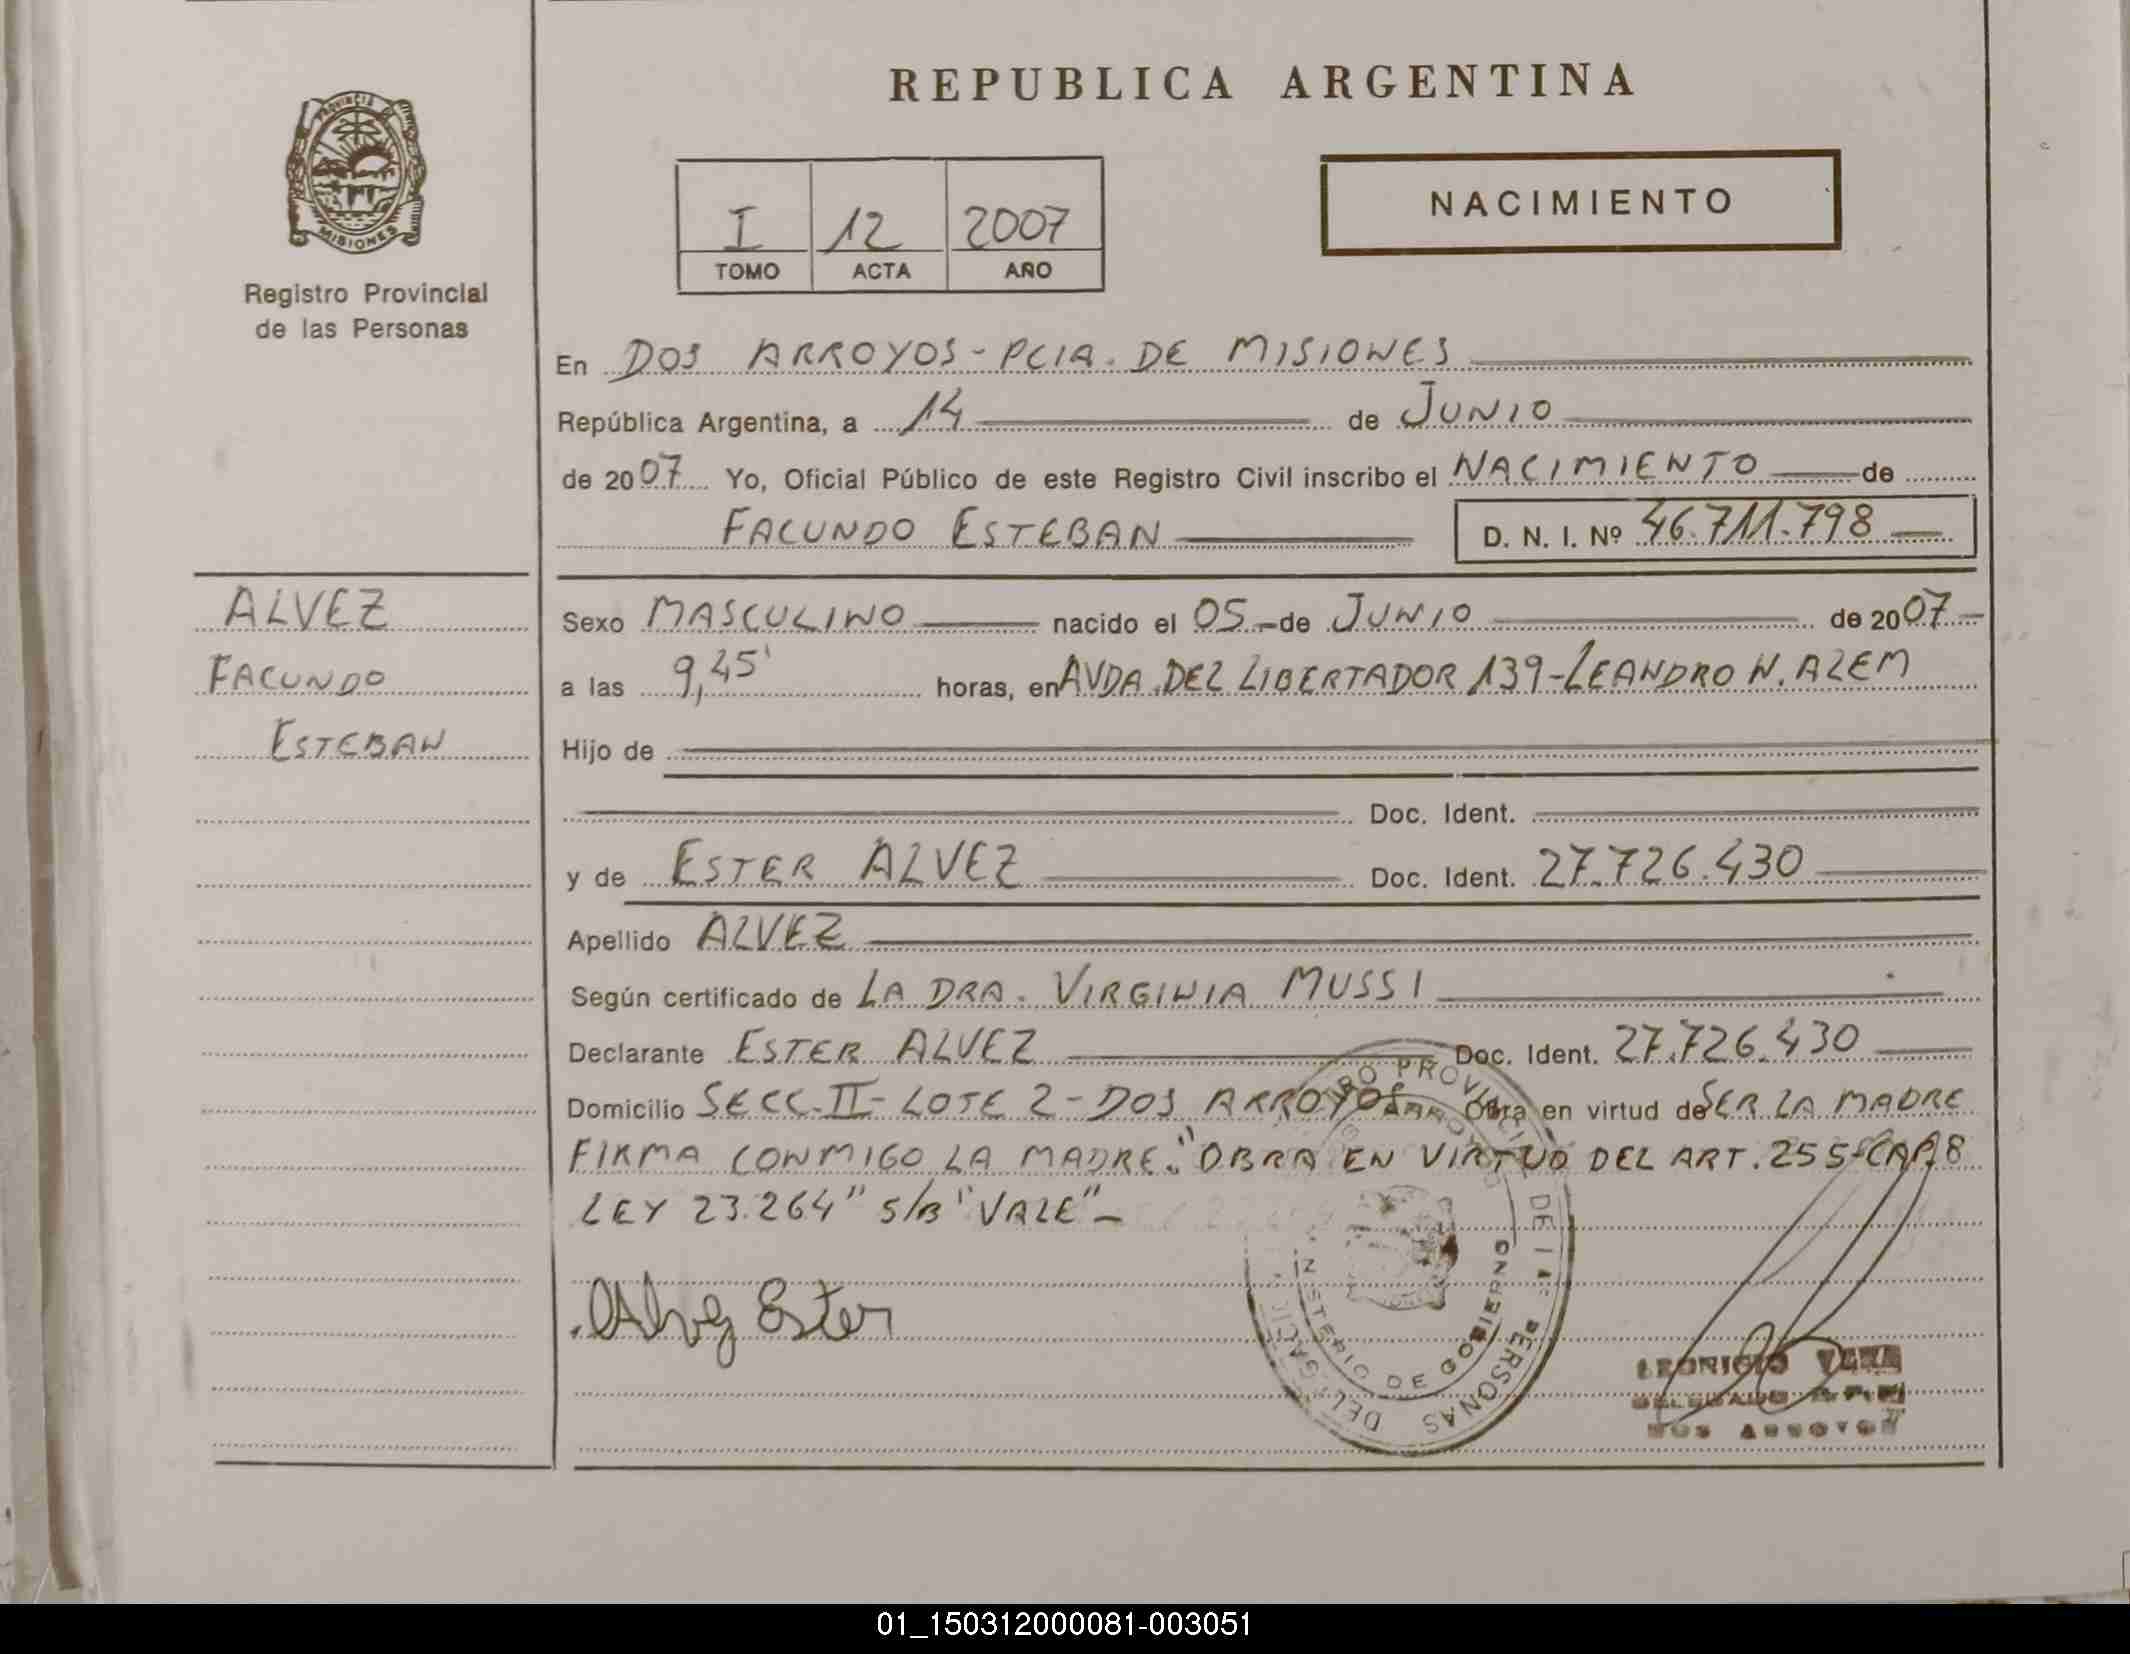 REPUBLICA ARGENTINA
PROVINCIA
MISIONES
Registro Provincial
de las Personas
I 12 2007
TOMO ACTA AÑO
NACIMIENTO
En DOS ARROYOS - PCIA. DE MISIONES
República Argentina, a 14 de JUNIO
de 2007 Yo, Oficial Público de este Registro Civil inscribo el NACIMIENTO de
FACUNDO ESTEBAN D. N. I. Nº 46.711.798
ALVEZ
FACUNDO
ESTEBAN
Sexo MASCULINO nacido el 05 de JUNIO de 2007
a las 9,45' horas, en AVDA. DEL LIBERTADOR 139-LEANDRO N. ALEM
Hijo de
Doc. Ident.
y de ESTER ALVEZ Doc. Ident. 27.726.430
Apellido ALVEZ
Según certificado de LA DRA. VIRGINIA MUSSI
Declarante ESTER ALVEZ Doc. Ident. 27.726.430
Domicilio SECC. II - LOTE 2 - DOS ARROYOS Obra en virtud de SER LA MADRE
FIRMA CONMIGO LA MADRE. "OBRA EN VIRTUD DEL ART. 255-CAP. 8
LEY 23.264" S/B "VALE" -
Alvez Ester
PROVINCIAL DE LAS PERSONAS
MINISTERIO DE GOBIERNO
DOS ARROYOS
01_150312000081-003051